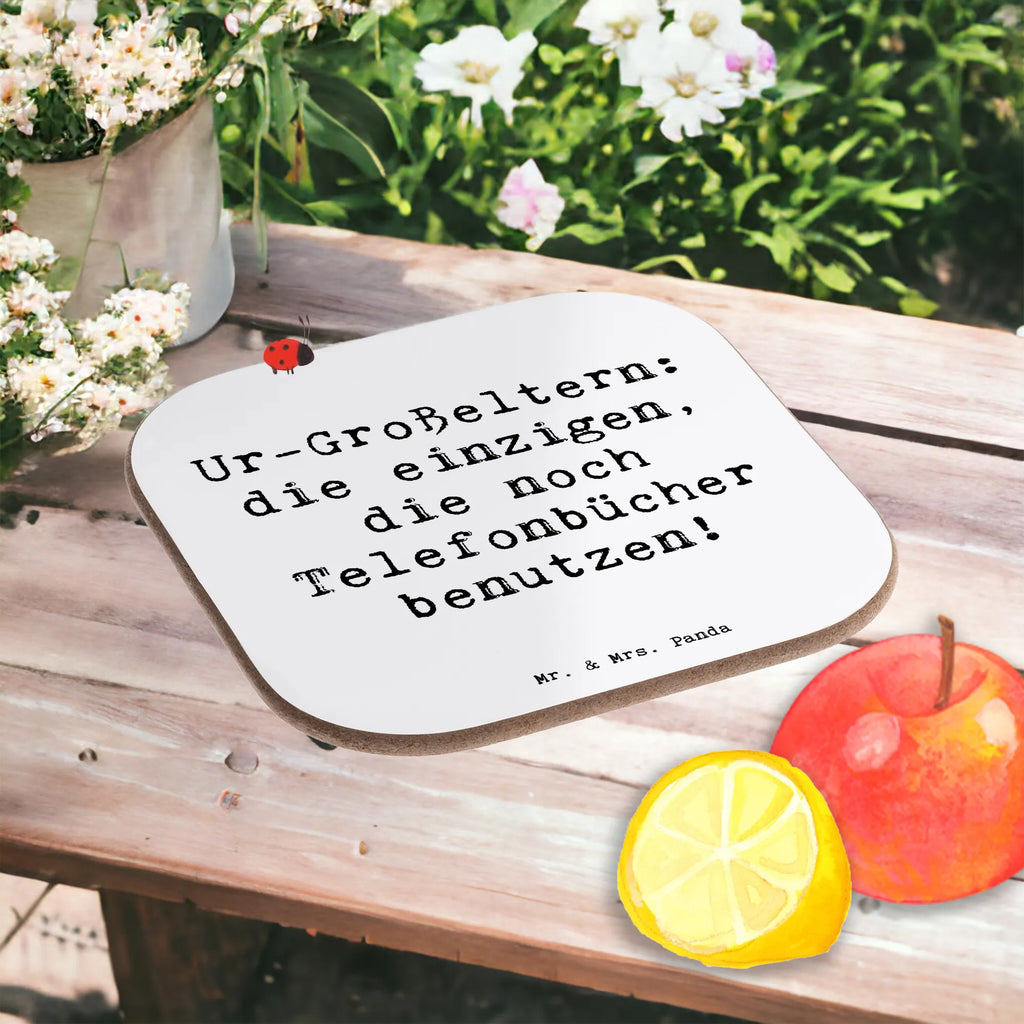 Ur-Großeltern:
die einzigen,
die noch
Telefonbücher
benutzen!
Mr. & Mrs. Panda